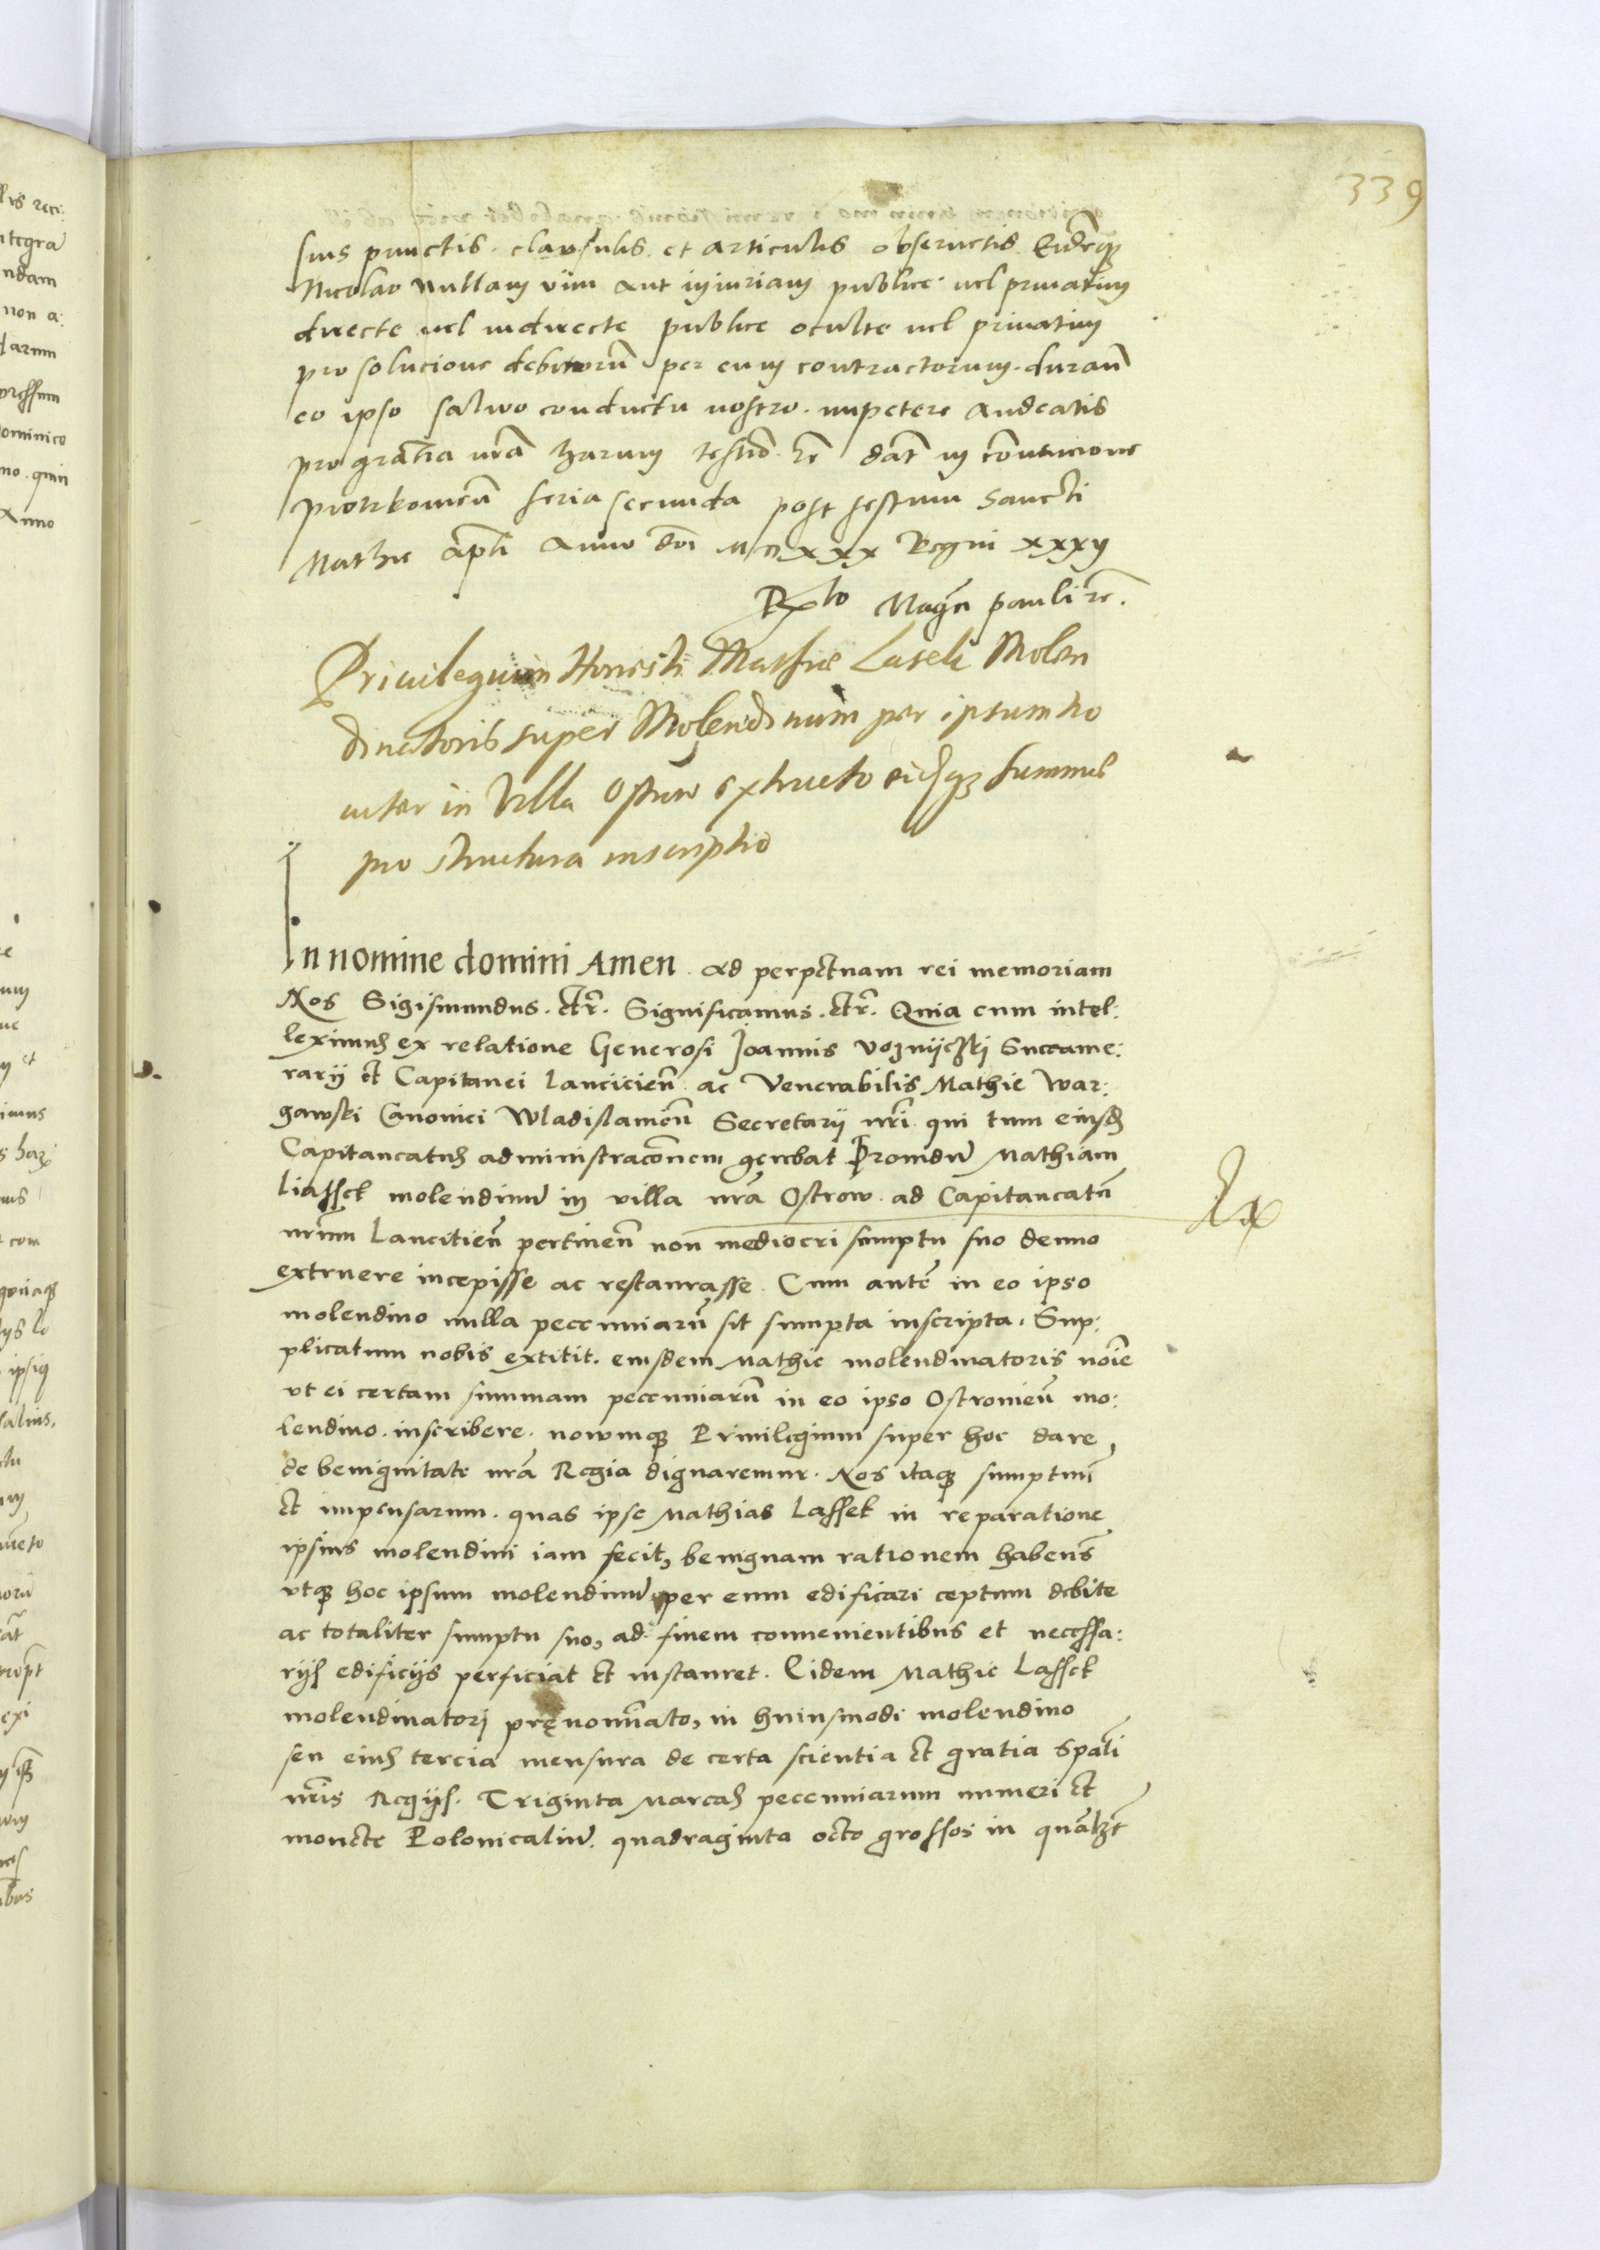 339
suis punctis. clausulis. et articulis obseruetis Eidemq
Nicolao nullam vim aut iniuriam publice. uel priuatim
directe uel indirecte publice oculte uel priuatim
pro solucione debitorũ per eum contractorum. durañ
eo ipso saluo conductu nostro. impetere audeatis
pro gratia nrã harum testiõ. &c dat̃ in conuencione
Piotrkouieñ feria secunda post festum Sancti
Mathie apłi Anno dñi M D xxx Regni xxxij
Rlo Magci Pauli &c.
Priuilegium Honesti Mathie Lasek Molen
dinatoris super Molendinum per ipsum no
uiter in Villa Ostrow extructo eiusq summe
pro structura inscriptio
In nomine domini Amen. Ad perpetuam rei memoriam
Nos Sigismundus. etc̃. Significamus. etc̃. Quia cum intel:
leximus ex relatione Generosi Joannis Vozniiczki Succame:
rarij et Capitanei Lanciciẽn ac Venerabilis Mathie War:
gawski Canonici Wladislauieñ Secretarij nrĩ qui tum eiusd
Capitaneatus administracõnem gerebat Prouidũ Mathiam
Liassek molendinũ in villa nrã Ostrow ad Capitaneatũ
nrm̃ Lancitieñ pertineñ non mediocri sumptu suo denuo
extruere incepisse ac restaurasse. Cum autẽ in eo ipso
molendino nulla peccuniarũ sit sumpta inscripta. Sup:
plicatum nobis extitit. eiusdem Mathie molendinatoris noĩe
vt ei certam summam peccuniarũ in eo ipso Ostrouieñ mo:
lendino. inscribere. nouumq Priuilegium super hoc dare
de benignitate nrã Regia dignaremur. Nos itaq sumptuũ
et impensarum. quas ipse Mathias Lassek in reparatione
ipsius molendini iam fecit, benignam rationem habeñs
vtq hoc ipsum molendinũ per eum edificari ceptum debite
ac totaliter sumptu suo, ad finem conuenientibus et necessa:
rijs edificijs perficiat et instauret. Eidem Mathie Lassek
molendinatori pręnomĩnato, in huiusmodi molendino
seu eius tercia mensura de certa scientia et gratia Spãli
nrĩs Regijs. Triginta Marcas peccuniarum numeri et
monete Polonicaliũ. quadraginta octo grossos in quãlzt
Lx